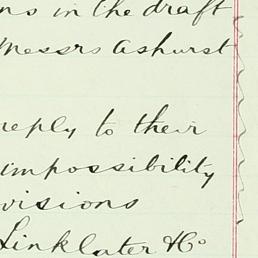 ns in the draft
Messrs Ashurst
reply to their
impossibility
visions
Linklater & Co